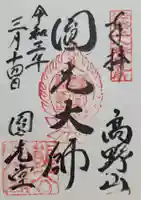 奉拝
高野山
圓光大師
令和五年
三月十四日
圓光堂